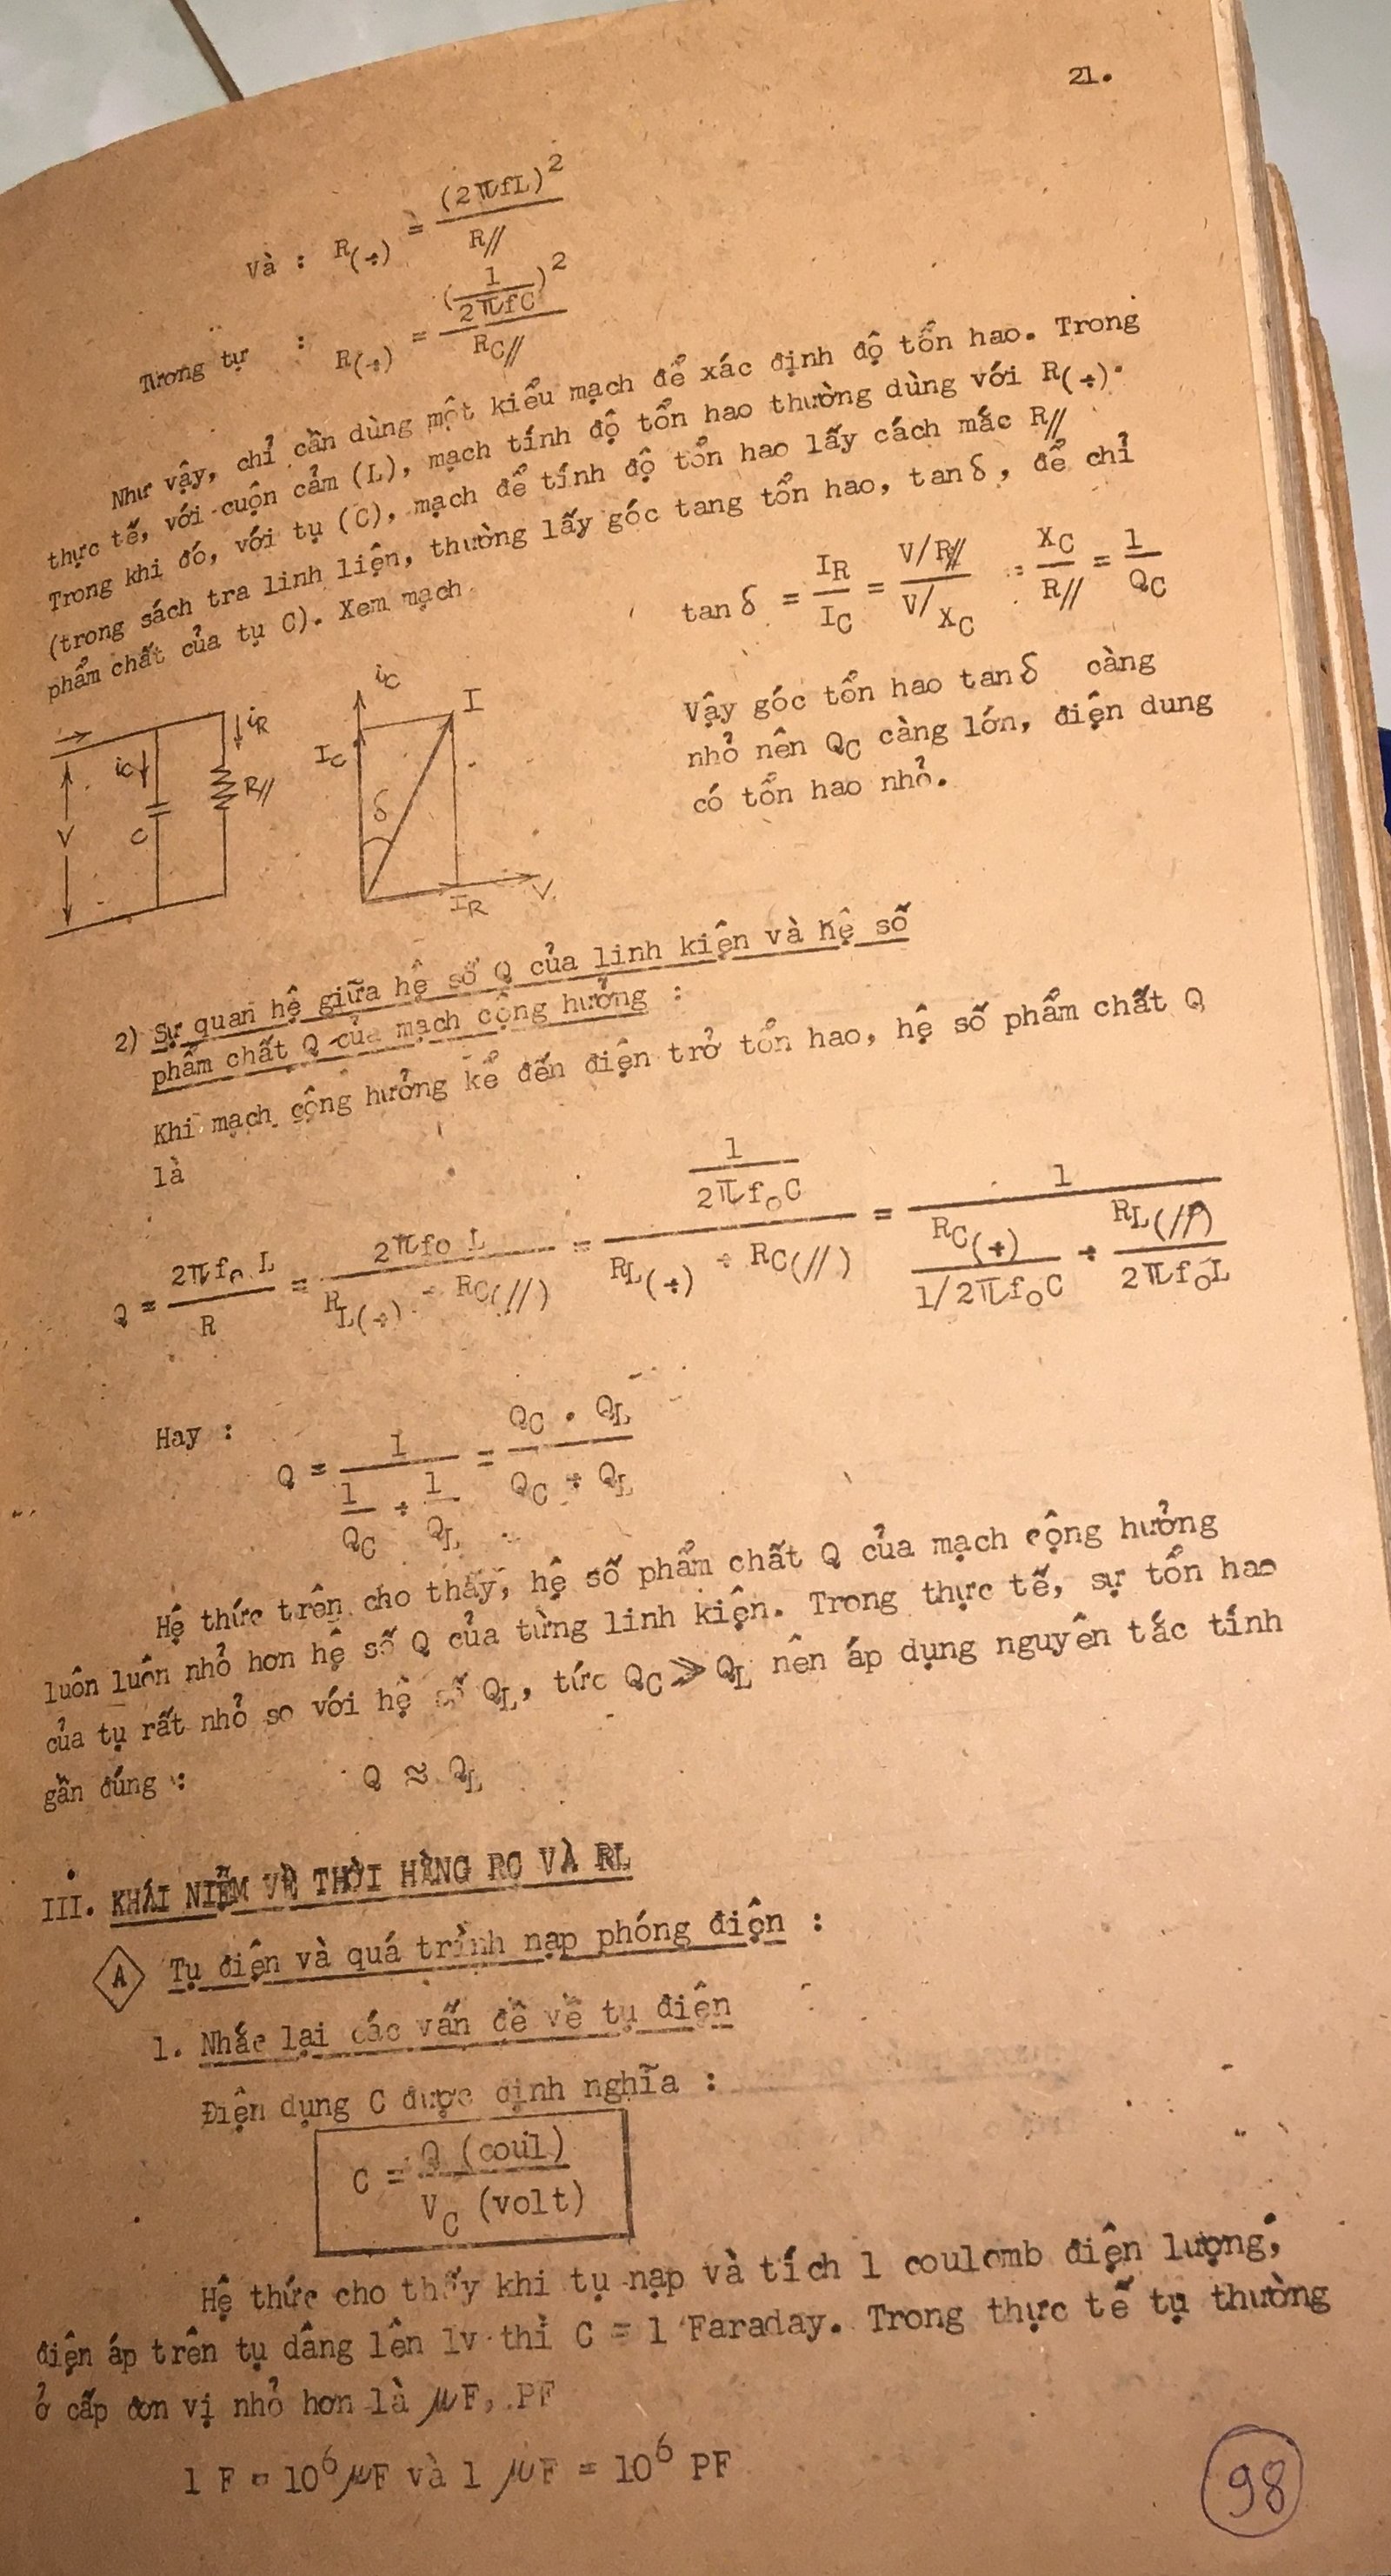 21.
Và : R(÷) = (2πfL)² / R//
Tương tự : R(÷) = (1 / 2πfC)² / RC//
Như vậy, chỉ cần dùng một kiểu mạch để xác định độ tổn hao. Trong
thực tế, với cuộn cảm (L), mạch tính độ tổn hao thường dùng với R(÷).
Trong khi đó, với tụ (C), mạch để tính độ tổn hao lấy cách mắc R//
(trong sách tra linh liện, thường lấy góc tang tổn hao, tan δ, để chỉ
phẩm chất của tụ C). Xem mạch
tan δ = IR / IC = V/R// / V/XC = XC / R// = 1 / QC
iC iR R// C V
iC I IC δ IR V
Vậy góc tổn hao tan δ càng
nhỏ nên QC càng lớn, điện dung
có tổn hao nhỏ.
2) Sự quan hệ giữa hệ số Q của linh kiện và hệ số
phẩm chất Q của mạch cộng hưởng :
Khi mạch cộng hưởng kể đến điện trở tổn hao, hệ số phẩm chất Q
là
Q = 2πfo L / R = 2πfo L / RL(÷) + RC(//) = 1 / 2πfoC / RL(÷) ÷ RC(//) = 1 / RC(÷) / 1/2πfoC ÷ RL(//) / 2πfoL
Hay :
Q = 1 / 1/QC ÷ 1/QL = QC . QL / QC ÷ QL
Hệ thức trên cho thấy, hệ số phẩm chất Q của mạch cộng hưởng
luôn luôn nhỏ hơn hệ số Q của từng linh kiện. Trong thực tế, sự tổn hao
của tụ rất nhỏ so với hệ số QL, tức QC ≫ QL nên áp dụng nguyên tắc tính
gần đúng : Q ≈ QL
III. KHÁI NIỄM VỀ THỜI HẰNG RC VÀ RL
A Tụ điện và quá trình nạp phóng điện :
1. Nhắc lại các vấn đề về tụ điện
Điện dụng C được định nghĩa :
C = Q (coul) / VC (volt)
Hệ thức cho thấy khi tụ nạp và tích 1 coulomb điện lượng,
điện áp trên tụ dâng lên 1v thì C = 1 Faraday. Trong thực tế tụ thường
ở cấp đơn vị nhỏ hơn là μF, PF
1 F = 10⁶ μF và 1 μF = 10⁶ PF
98